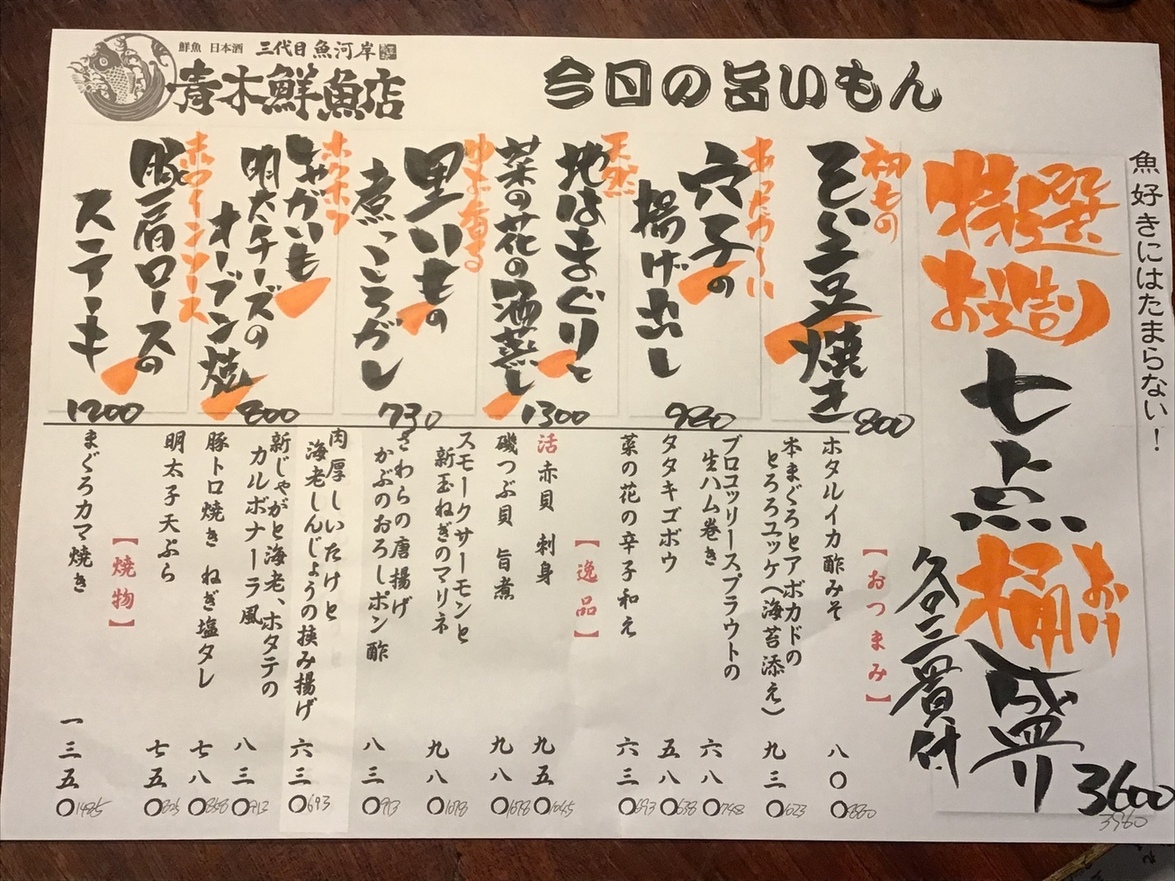 鮮魚 日本酒 三代目 魚河岸
青木鮮魚店
今日の旨いもん
魚好きにはたまらない！
特選
お造り
七点
桶盛り
おけ
各三貫付
3600
3960
初もの
そら豆
焼き
800
あったかーい
穴子の
揚げ出し
980
天然
地はまぐりと
菜の花の酒蒸し
1300
里いもの
煮っころがし
730
ホクホク
じゃがいも
明太チーズの
オーブン焼
800
赤ワインソース
豚肩ロースの
ステーキ
1200
【おつまみ】
ホタルイカ酢みそ 八〇〇 880
本まぐろとアボカドの
とろろユッケ（海苔添え） 九三〇 1023
ブロコッリースプラウトの
生ハム巻き 六八〇 748
タタキゴボウ 五八〇 638
菜の花の辛子和え 六三〇 693
【逸品】
活赤貝 刺身 九五〇 1045
磯つぶ貝 旨煮 九八〇 1078
スモークサーモンと
新玉ねぎのマリネ 九八〇 1078
さわらの唐揚げ
かぶのおろしポン酢 八三〇 913
肉厚しいたけと
海老しんじょうの挟み揚げ 六三〇 693
新じゃがと海老、ホタテの
カルボナーラ風 八三〇 913
豚トロ焼き ねぎ塩タレ 七八〇 858
明太子天ぷら 七五〇 825
【焼物】
まぐろカマ焼き 一三五〇 1485